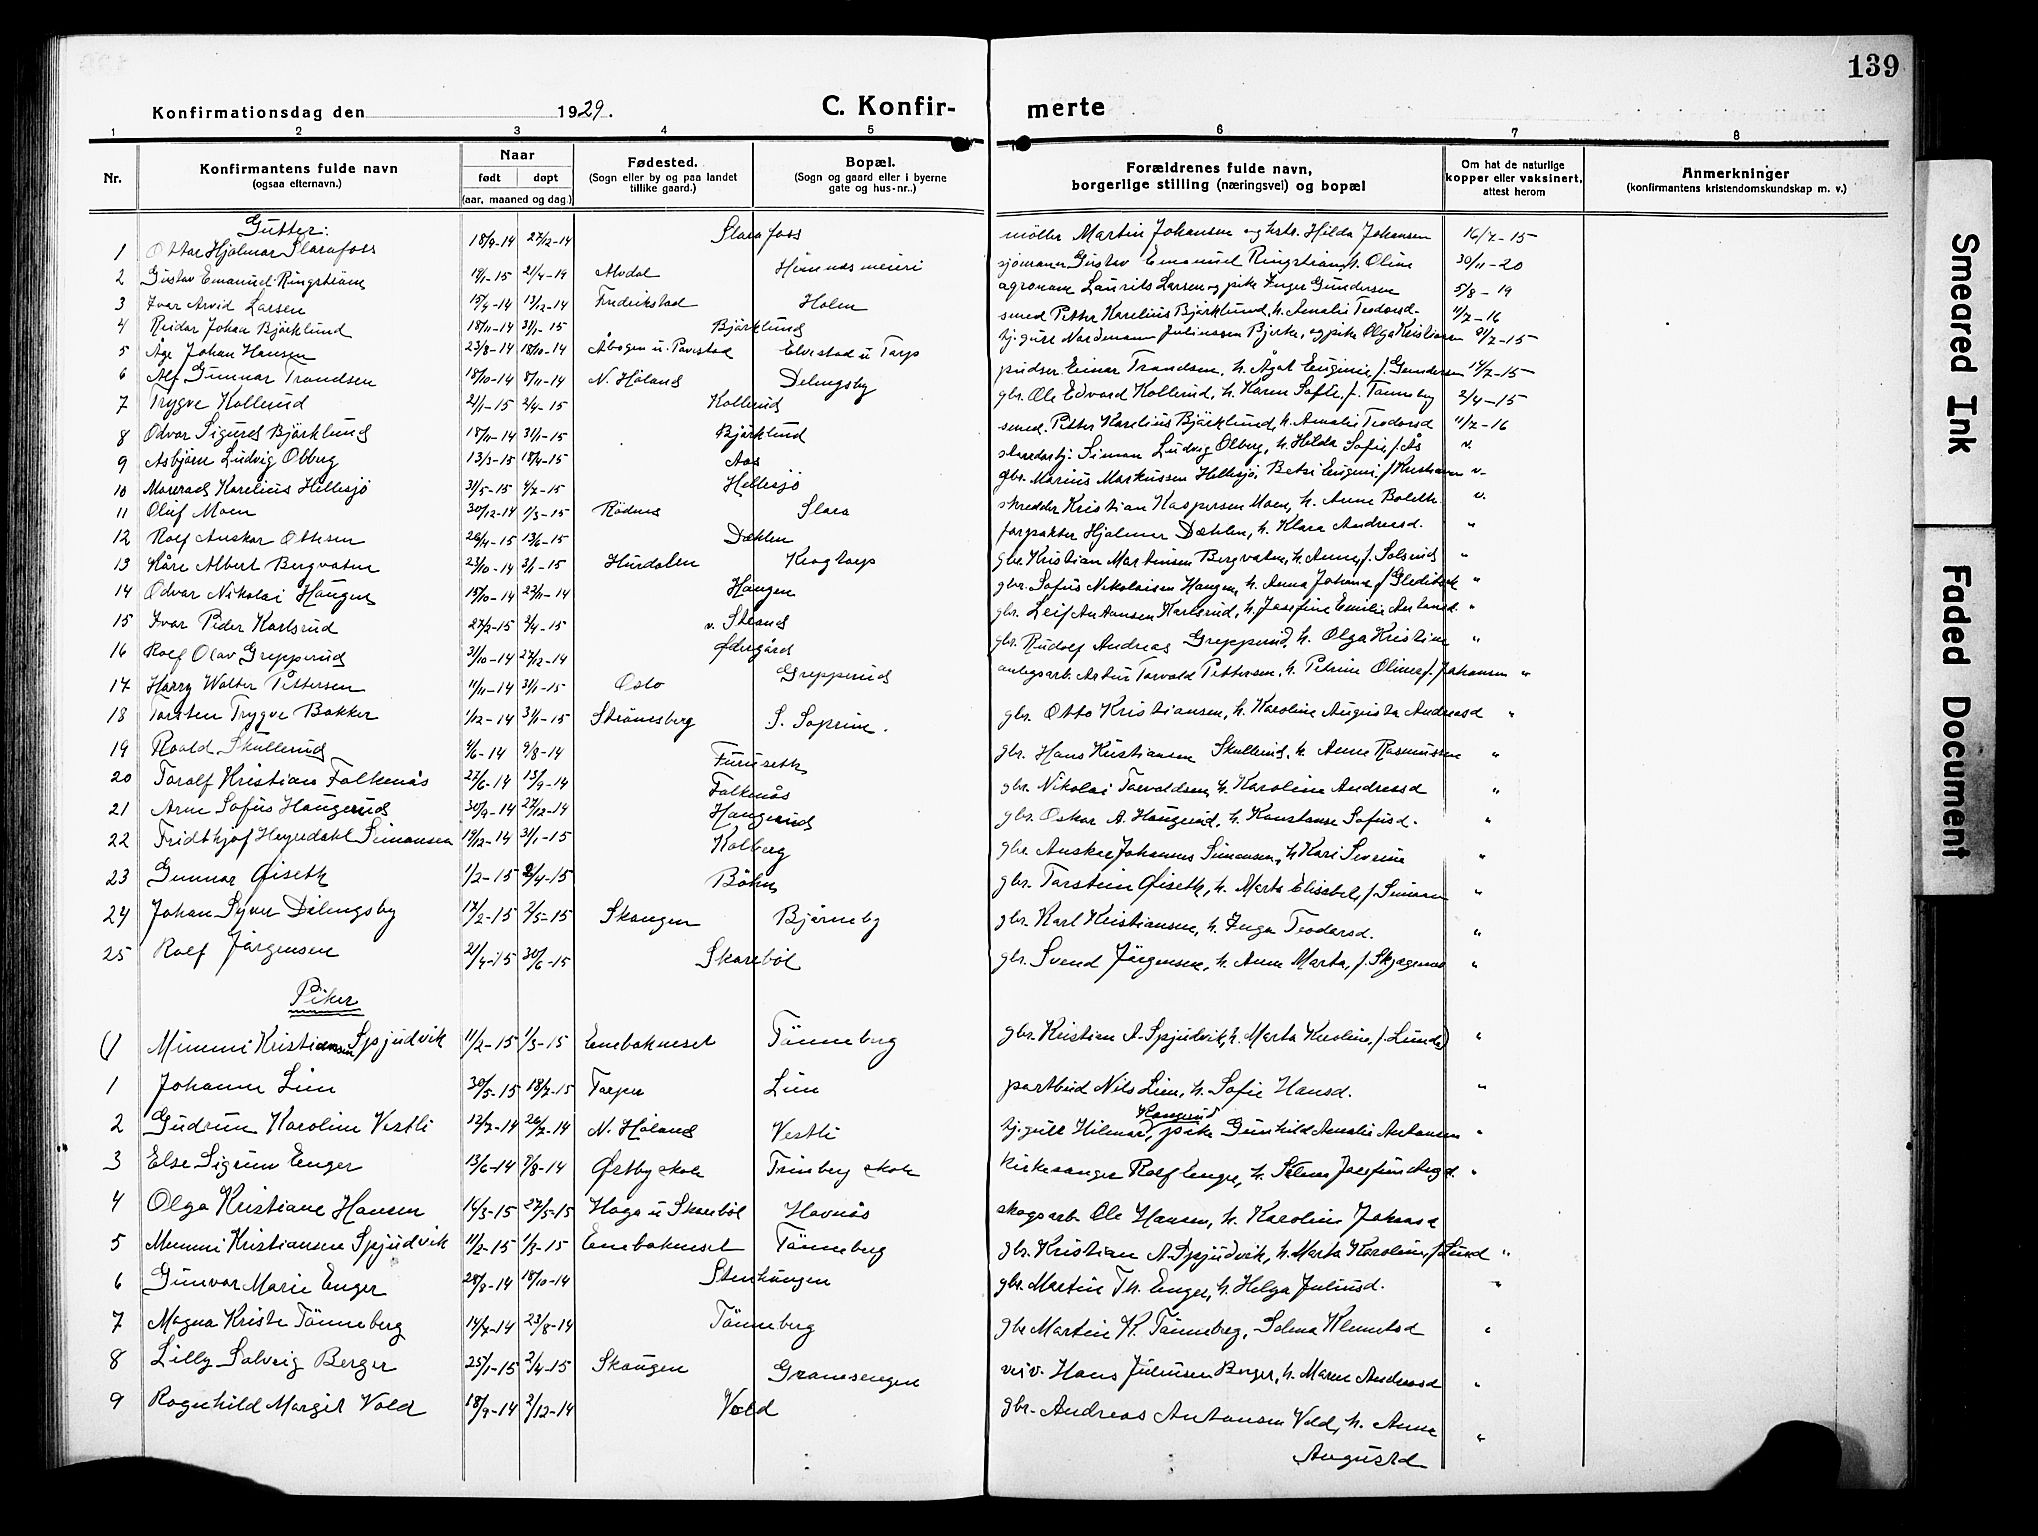 139
Konfirmationsdag den 1929. C. Konfir- merte
1 2 3 4 5 6 7 8
Nr. Konfirmantens fulde navn (ogsaa efternavn.) Naar født døpt (aar, maaned og dag.) Fødested. (Sogn eller by og paa landet tillike gaard.) Bopæl. (Sogn og gaard eller i byerne gate og hus-nr..) Forældrenes fulde navn, borgerlige stilling (næringsvei) og bopæl Om hat de naturlige kopper eller vaksinert, attest herom Anmerkninger (konfirmantens kristendomskundskap m. v.)
Gutter:
1 Ottar Hjalmar Slorafoss 18/9-14 27/12-14 Slorafoss møller Martin Johansen og hstr. Hilda Johansen 16/7-15
2 Gustav Emanuel Ringstrøm 21/4-14 Hemnæs meieri sjömann Gustav Emanuel Ringstrøm, h. Oline 30/11-20
3 Ivar Arvid Larsen 15/4-14 13/12-14 Fredrikstad Holen agronom Laurits Larsen og pike Inger Gundersen 5/8-19
4 Reidar Johan Björklund 18/11-14 31/1-15 Björklund smed Petter Karelius Björklund, h. Amalie Teodorsd. 11/7-16
5 Åge Johan Hansen 23/8-14 18/10-14 Åbogen u. Elvestad u Tarp tj.gutt Nordmann Julinssen Bjerke, og pike Olga Kristiansen 21/7-15
6 Alf Gunnar Trandsen 18/10-14 8/11-14 N. Høland Delingsby pudser Einar Trandsen, h. Ågot Eugenie f. Gundersen 14/7-15
7 Trygve Kollerud 21/1-15 2/4-15 Kollerud gbr. Ole Edvard Kollerud, h. Karen Sofie, f. Tanneby 2/4-15
8 Odvar Sigurd Björklund 18/11-14 31/1-15 Björklund smed. Petter Karelius Björklund, h. Amalie Teodorsd 11/7-16
9 Asbjørn Ludvig Olberg 13/3-15 18/4-15 Aas Simon Ludvig Olberg, h. Hilda Sofie, f. Ås v.
10 Karelius Hellesjö 31/5-15 4/7-15 Hellesjö gbr. Marius Markussen Hellesjö, Betzi Eugenie, f. Kristiansen v.
11 Oluf Moen 30/12-14 1/3-15 Rödnes Slora skredder Kristian Kaspersen Moen, h. Anne Bolette v.
12 Rolf Anskar Ottesen 26/4-15 13/6-15 Dæhlen forpakter Hjalmar Dæhlen, h. Klara Andreasd. "
13 Kåre Albert Bergvatn 23/10-14 3/1-15 Hurdalen Krogtorp gbr. Kristian Martinsen Bergvatn, h. Anne, f. Solsrud "
14 Odvar Nikolai Haugen 15/10-14 22/11-14 Haugen gbr. Sofus Nikolaisen Haugen, h. Anna Johanne, f. Gleditsch "
15 Ivar Peder Karlsrud 27/2-15 2/4-15 v. Strand gbr. Leif Antonsen Karlsrud, h. Josefine Emilie Antonsd. "
16 Rolf Olav Grepperud 31/10-14 27/12-14 Østergård gbr. Rudolf Andreas Grepperud, h. Olga Kristine "
17 Harry Walter Pettersen 11/11-14 31/1-15 Oslo Grepperud anlegsarb. Artur Torvald Pettersen, h. Petrine Oline, f. Johansen "
18 Torsten Trygve Bakker 1/12-14 31/1-15 Strömsberg S. Soprim. gbr. Otto Kristiansen, h. Karoline Augusta Andreasd "
19 Roald Skullerud 4/6-14 9/8-14 Furuseth gbr. Hans Kristiansen Skullerud, h. Anne Rasmussen "
20 Toralf Kristian Falkenås 27/6-14 13/9-14 Falkenås gbr. Nikolai Torvaldsen, h. Karoline Andreasd "
21 Arne Sofus Haugerud 30/9-14 27/12-14 Haugerud gbr. Oskar A. Haugerud, h. Konstanse Sofusd. "
22 Fridthjof Heyerdahl Simonsen 19/12-14 31/1-15 Kolberg gbr. Anskar Johannes Simonsen, h. Kari Severine "
23 Gunnar Øiseth 1/2-15 2/4-15 Böhn gbr. Torstein Øiseth, h. Marta Elisabet, f. Simonsen "
24 Johan Syver Delingsby 17/2-15 2/5-15 Skaugen Bjørneby gbr. Karl Kristiansen, h. Inga Teodorsd. "
25 Rolf Jörgensen 21/4-15 30/6-15 Skarebøl gbr. Svend Jörgensen, h. Anne Marta, f. "
Piker
(1 Mimmi Kristiansen Spjudvik 11/2-15 1/3-15 Enebakneset Tönneberg gbr. Kristian A. Spjudvik, h. Marta Karoline, f. Lund) "
1 Johanne Lien 30/5-15 18/7-15 Torper Lien postbud Nils Lien, h. Sofie Hansd. "
2 Gudrun Karoline Vestli 12/7-14 26/7-14 N. Høland Vestli tj.gutt Hilmar Haugerud, pike Gunhild Amalie Antonsen "
3 Else Sigrun Enger 13/6-14 9/8-14 Østby skole Trinborg skole kirkesanger Rolf Enger, h. Selma Josefine Aagd. "
4 Olga Kristiane Hansen 16/3-15 27/5-15 Haga u Skarebøl Havnås skogsarb. Ole Hansen, h. Karoline Johansd "
5 Mimmi Kristiansen Spjudvik 11/2-15 1/3-15 Enebakneset Tönneberg gbr. Kristian A. Spjudvik, h. Marta Karoline, f. Lund "
6 Gunvor Marie Enger 28/8-14 18/10-14 Stenhaugen gbr. Martin Th. Enger, h. Helga Juliusd. "
7 Magna Kristi Tönneberg 14/7-14 23/8-14 Tönneberg gbr Martin K. Tönneberg, Selma Klemetsd "
8 Lilly Solveig Berger 25/1-15 2/4-15 Skaugen Granesengen veiv. Hans Juliusen Berger, h. Maren Andreasd "
9 Ragnhild Margit Vold 18/9-14 2/12-14 Vold gbr. Andreas Antonsen Vold, h. Anne Augustsd "
Smeared Ink
Faded Document